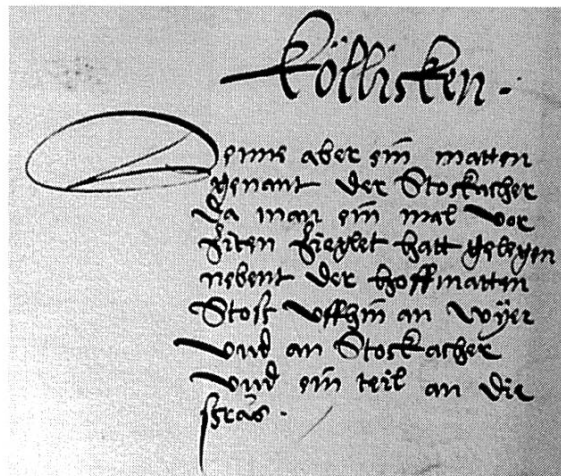 Köllicken.
Denne aber ein matten
genant der Stockacher
da man ein mal vor
ziten zieglet hatt gelegen
nebent der hoffmatten
Stost uffhin an wyer
vnd an Stockacher
vnd ein teil an die
stras.